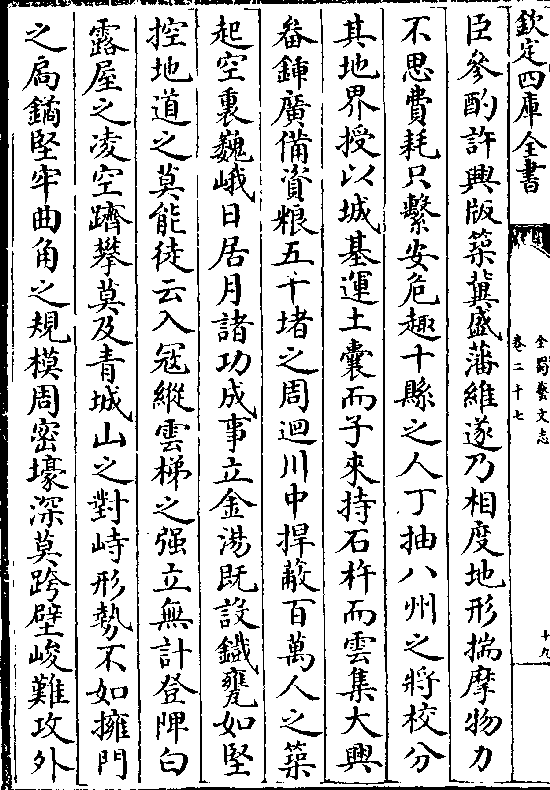 欽定四庫全書
全蜀藝文志
卷二十七
十九
臣參酌許興版築冀盛藩維遂乃相度地形揣摩物力
不思費耗只繫安危趣十縣之人丁抽八州之將校分
其地界授以城基運土囊而子來持石杵而雲集大興
畚鍤廣備資粮五十堵之周迴川中捍蔽百萬人之築
起空裏巍峨日居月諸功成事立金湯既設鐵甕如堅
控地道之莫能徒云入冦縱雲梯之强立無計登陴白
露屋之凌空躋攀莫及青城山之對峙形勢不如擁門
之扄鐍堅牢曲角之規模周密壕深莫跨壁峻難攻外